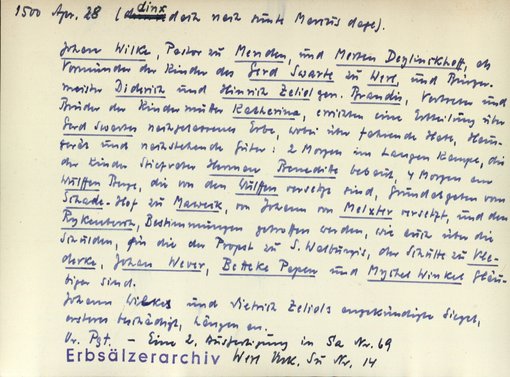 1500 Apr. 28 (dinxdach nach sunte Marcus dage).
Johann Wilke, Pastor zu Menden, und Merten Deylinckhoff, als
Vormünder der Kinder des Gerd Swarte zu Werl, und Bürger-
meister Diderich und Hinrich Zeliol gen. Brandis, Vertreter und
Brüder der Kindermutter Katherina, errichten eine Erbteilung über
Gerd Swartes nachgelassenes Erbe, wobei über fahrende Habe, Haus-
gerät und nachstehende Güter: 2 Morgen im Langen Kampe, die
der Kinder Stiefvater Herman Benedite bebaut, 4 Morgen am
Wulffen Berge, die von den Wulffen versetzt sind, Grundabgaben vom
Schade-Hof zu Mawick, von Johann von Melxter versetzt, und den
Bestimmungen getroffen werden, wie auch über die
Schulden, für die der Propst zu S. Walburgis, der Schulte zu Vle-
derke, Johan Wever, Betteke Papen und Mychel Winkel Gläu-
biger sind.
Johann Wilkes und Dietrich Zeliols angekündigte Siegel,
ersteres beschädigt, hängen an.
Or. Pgt. – Eine 2. Ausfertigung in Sa Nr. 69
Erbsälzerarchiv Werl Urk. Su Nr. 14